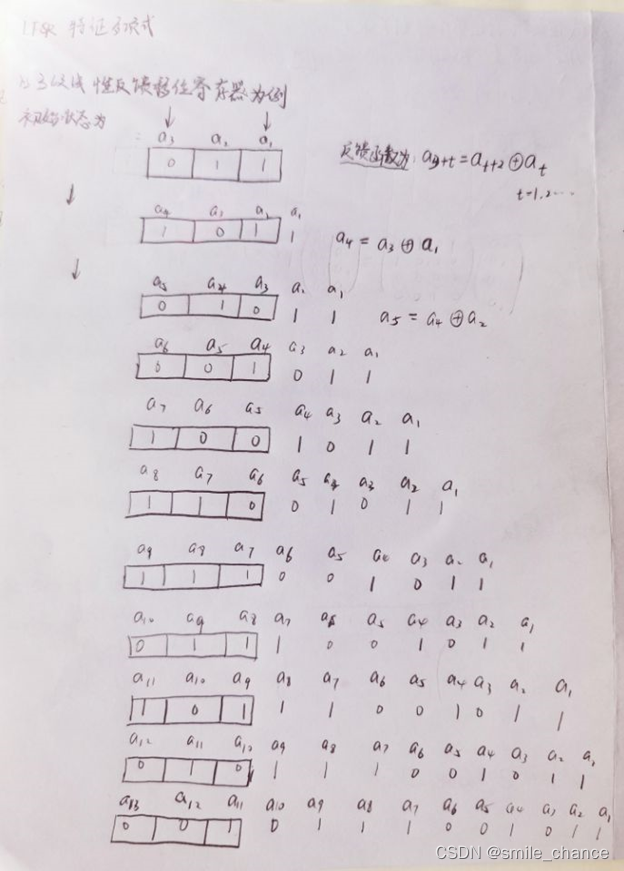 LFSR 特征多项式
以3级线性反馈移位寄存器为例
初始状态为
a3 a2 a1
0 1 1
反馈函数为: a3+t = at+2 ⊕ at
t=1,2...
a4 a3 a2 a1
1 0 1 1
a4 = a3 ⊕ a1
a5 a4 a3 a2 a1
0 1 0 1 1
a5 = a4 ⊕ a2
a6 a5 a4 a3 a2 a1
0 0 1 0 1 1
a7 a6 a5 a4 a3 a2 a1
1 0 0 1 0 1 1
a8 a7 a6 a5 a4 a3 a2 a1
1 1 0 0 1 0 1 1
a9 a8 a7 a6 a5 a4 a3 a2 a1
1 1 1 0 0 1 0 1 1
a10 a9 a8 a7 a6 a5 a4 a3 a2 a1
0 1 1 1 0 0 1 0 1 1
a11 a10 a9 a8 a7 a6 a5 a4 a3 a2 a1
1 0 1 1 1 0 0 1 0 1 1
a12 a11 a10 a9 a8 a7 a6 a5 a4 a3 a2 a1
0 1 0 1 1 1 0 0 1 0 1 1
a13 a12 a11 a10 a9 a8 a7 a6 a5 a4 a3 a2 a1
0 0 1 0 1 1 1 0 0 1 0 1 1
CSDN @smile_chance